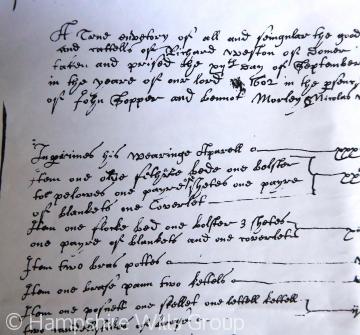 A True enventory of all and singular the good
and cattells of Richard Weston of Somer
taken and prised the day of September
in the yeare of our lord 1602 in the psenc
of John Hopper and bennot Morley Nicolas
Inprimes his wearinge Aparell xxx
Item one olde fether bede one bolster
too pelowes one payre shetes one payre xx
of blankets one Coverlet
Item one flocke bed one bolster 3 shetes
one payre of blankets and one coverlet x
Item two bras pottes
Item one brasse pann two kettels
Item one posnett one skellet one kettell
© Hampshire Wills Group